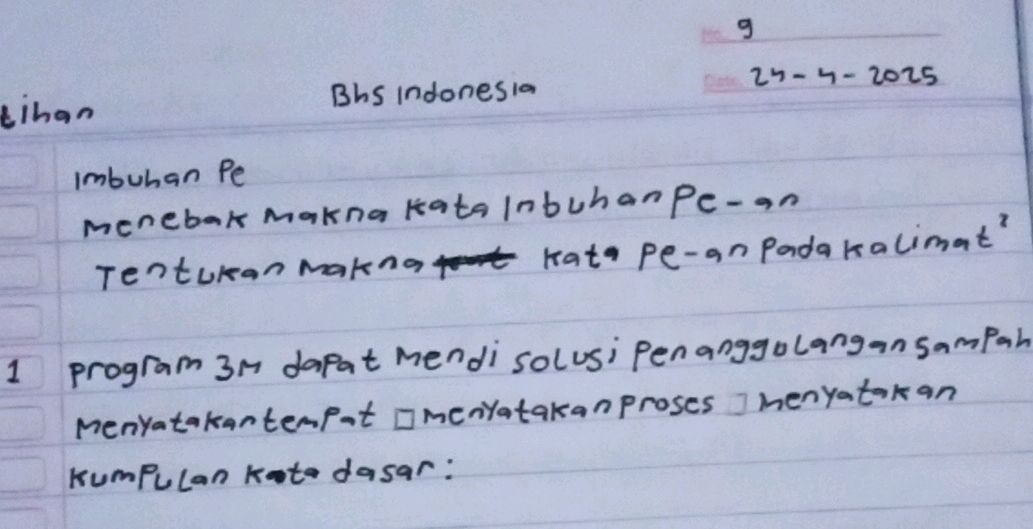 No. 9
Date. 24-4-2025
Bhs Indonesia
tihan
Imbuhan Pe
Menebak Makna Kata Inbuhan Pe-an
Tentukan Makna Kata Pe-an Pada Kalimat²
1 Program 3M dapat Mendi solusi Penanggulangan Sampah
Menyatakan tempat □ Menyatakan Proses □ Menyatakan
Kumpulan Kata dasar: